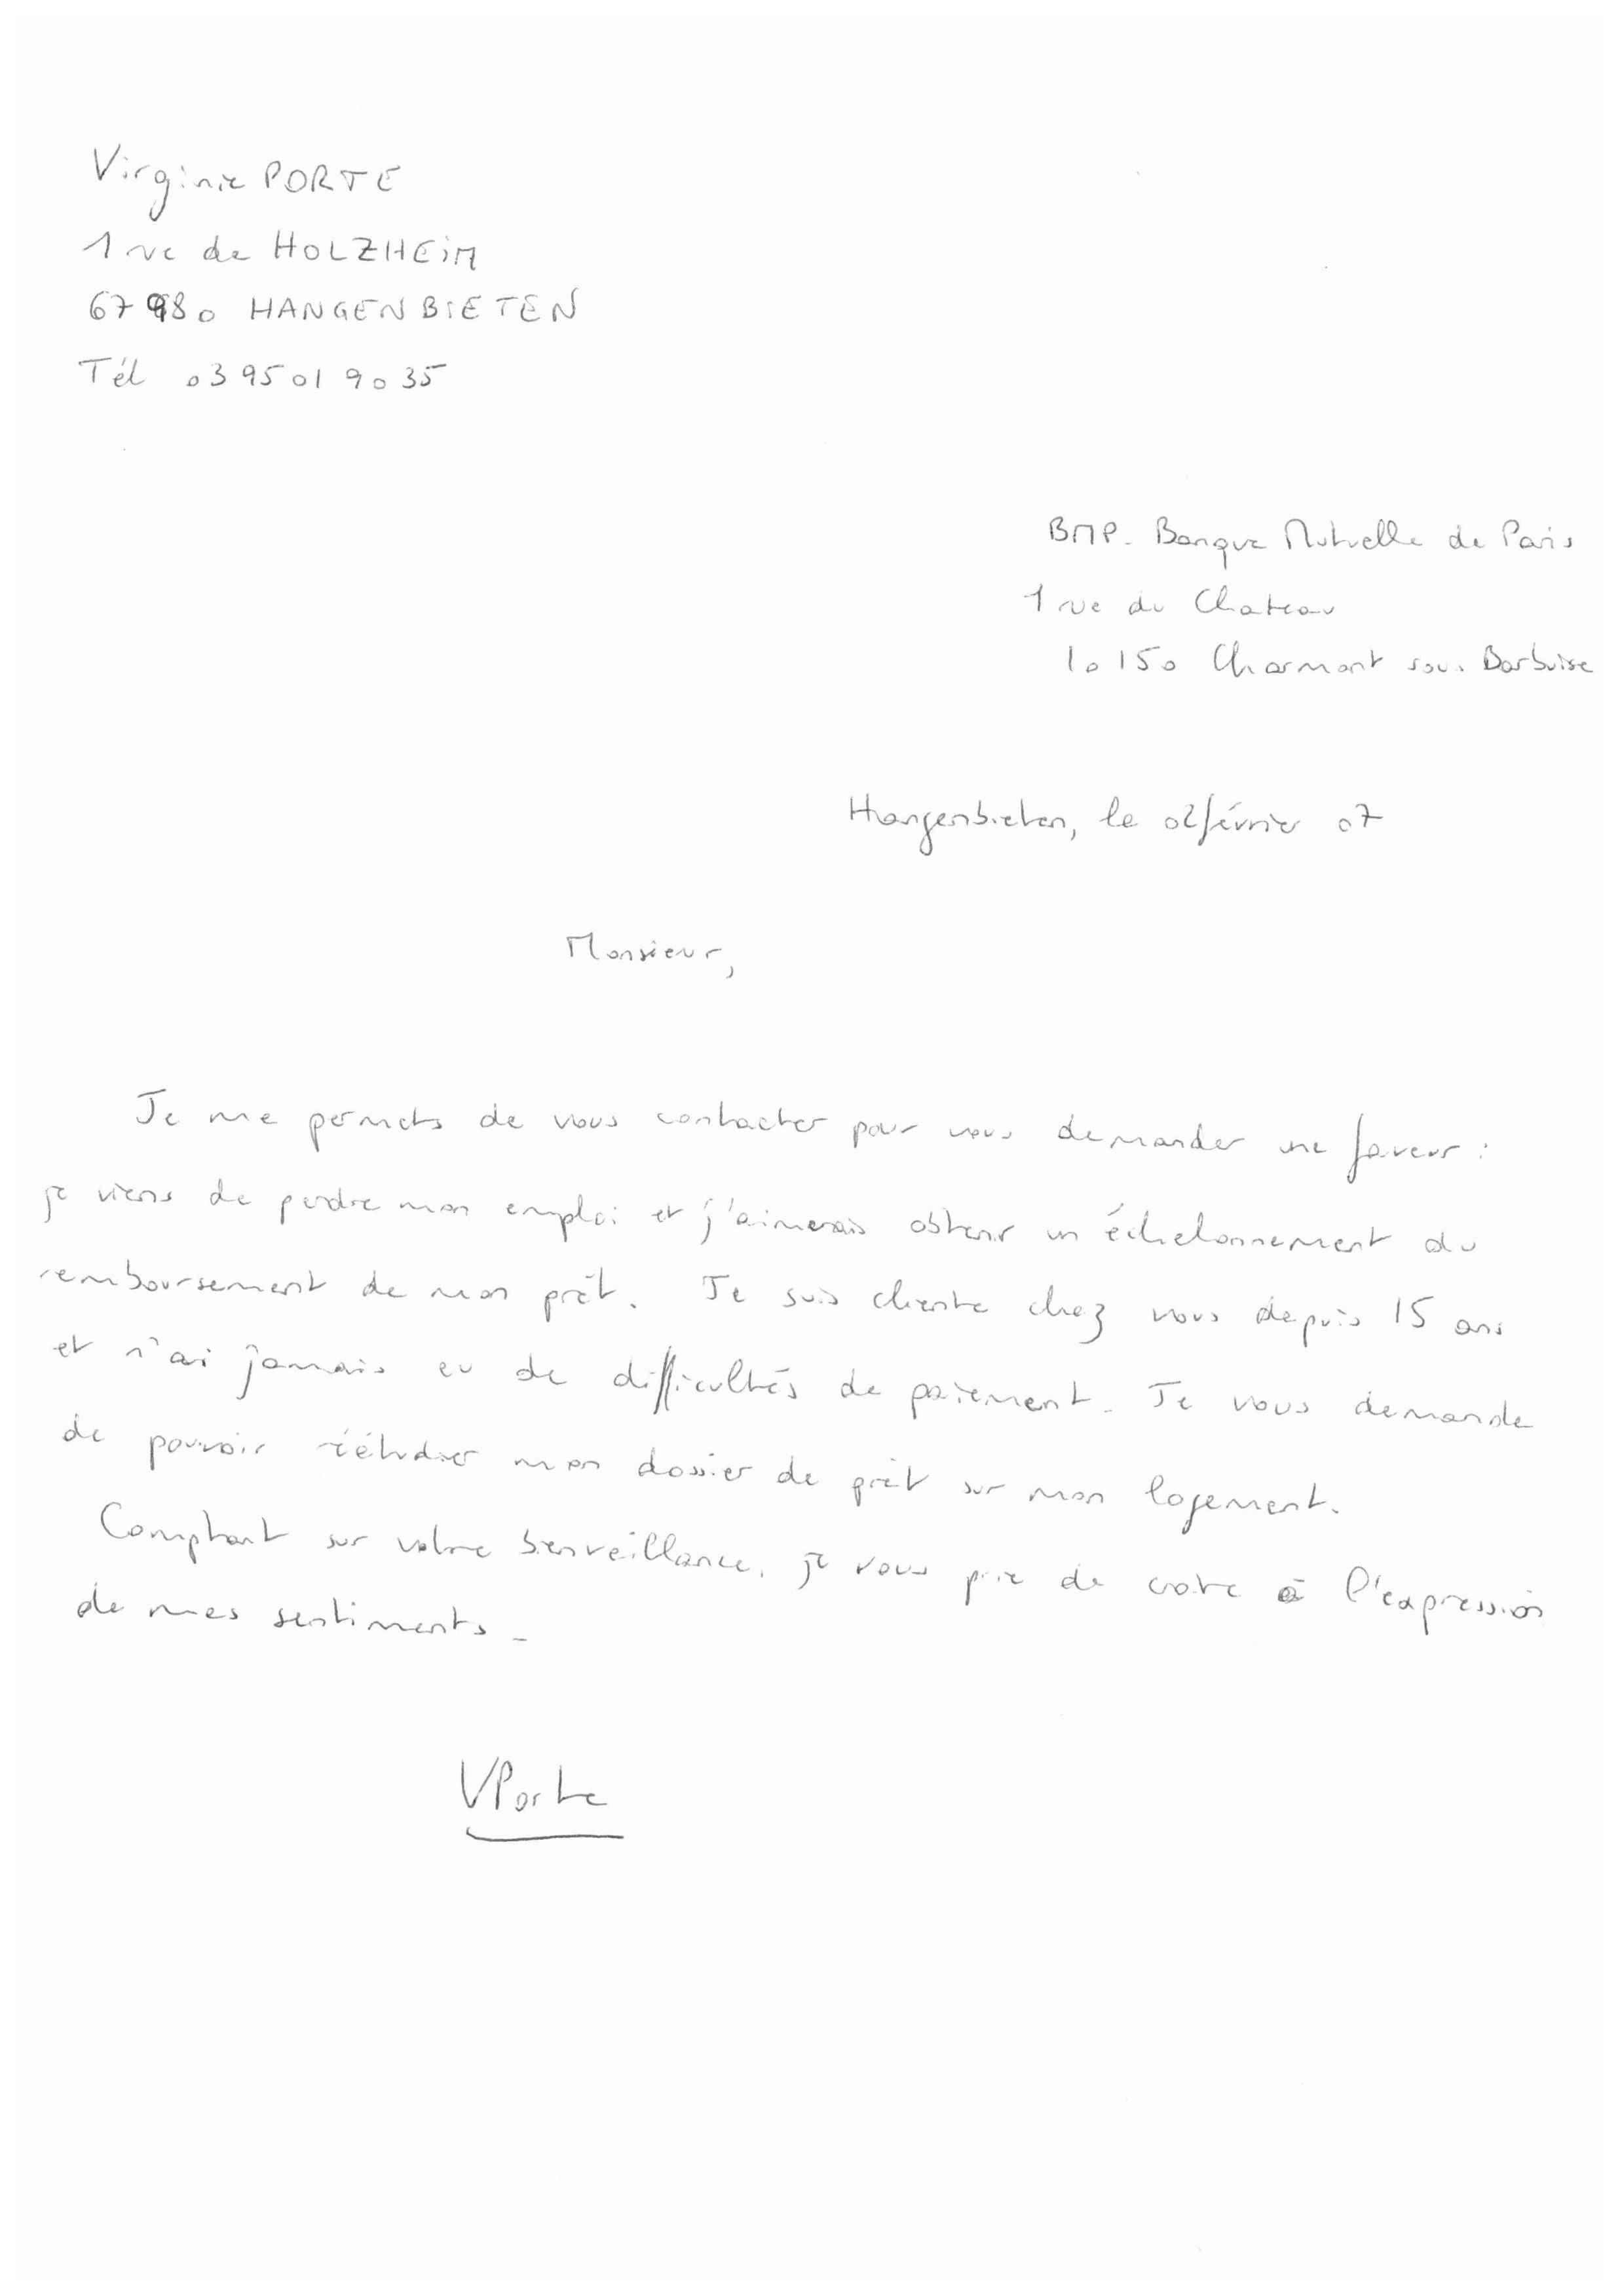 Virginie PORTE
1 rue de HOLZHEIM
67980 HANGENBIETEN
Tél 03 95 01 90 35
BMP - Banque Mutuelle de Paris
1 rue du Chateau
10150 Charmont sous Barbuise
Hangenbieten, le 02 février 07
Monsieur,
Je me permets de vous contacter pour vous demander une faveur :
je viens de perdre mon emploi et j'aimerais obtenir un échelonnement du
remboursement de mon prêt. Je suis cliente chez vous depuis 15 ans
et n'ai jamais eu de difficultés de paiement. Je vous demande
de pouvoir réétudier mon dossier de prêt sur mon logement.
Comptant sur votre bienveillance, je vous prie de croire à l'expression
de mes sentiments.
VPorte